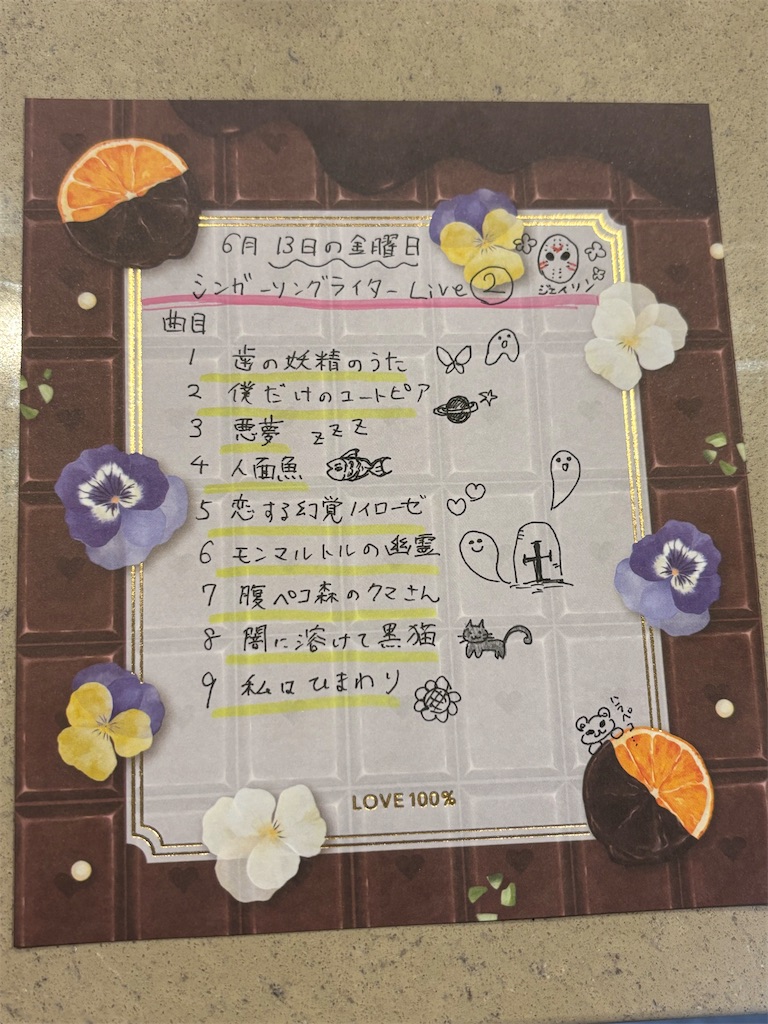 6月 13日の金曜日
ジェイソン
シンガーソングライター Live ②
曲目
1 歯の妖精のうた
2 僕だけのユートピア
3 悪夢 zzz
4 人面魚
5 恋する幻覚ノイローゼ
6 モンマルトルの幽霊
7 腹ペコ森のクマさん
8 闇に溶けて黒猫
9 私はひまわり
ハラペコ…
LOVE 100%